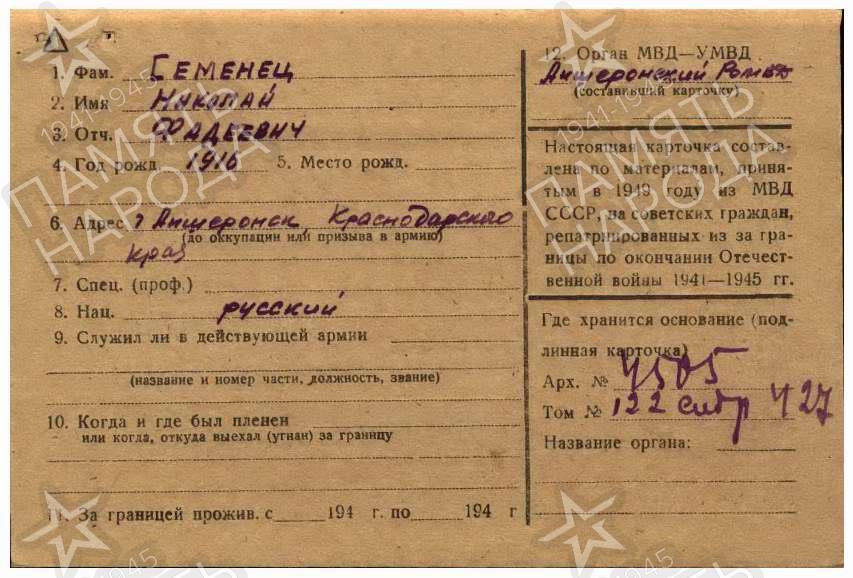 1. Фам. Семенец
2. Имя Николай
3. Отч. Фадеевич
4. Год рожд. 1916 5. Место рожд.
6. Адрес г Апшеронск, Краснодарского
(до оккупации или призыва в армию)
края
7. Спец. (проф.)
8. Нац. русский
9. Служил ли в действующей армии
(название и номер части, должность, звание)
10. Когда и где был пленен
или когда, откуда выехал (угнан) за границу
11. За границей прожив. с 194 г. по 194 г
12. Орган МВД—УМВД
Апшеронский
(составивший карточку)
Настоящая карточка состав-
лена по материалам, приня-
тым в 1949 году из МВД
СССР, на советских граждан,
репатриированных из за гра-
ницы по окончании Отечест-
венной войны 1941—1945 гг.
Где хранится основание (под-
линная карточка)
Арх. № 4505
Том № 122 427
Название органа:
ПАМЯТЬ
НАРОДА
1941-1945
ПАМЯТЬ
НАРОДА
1941-1945